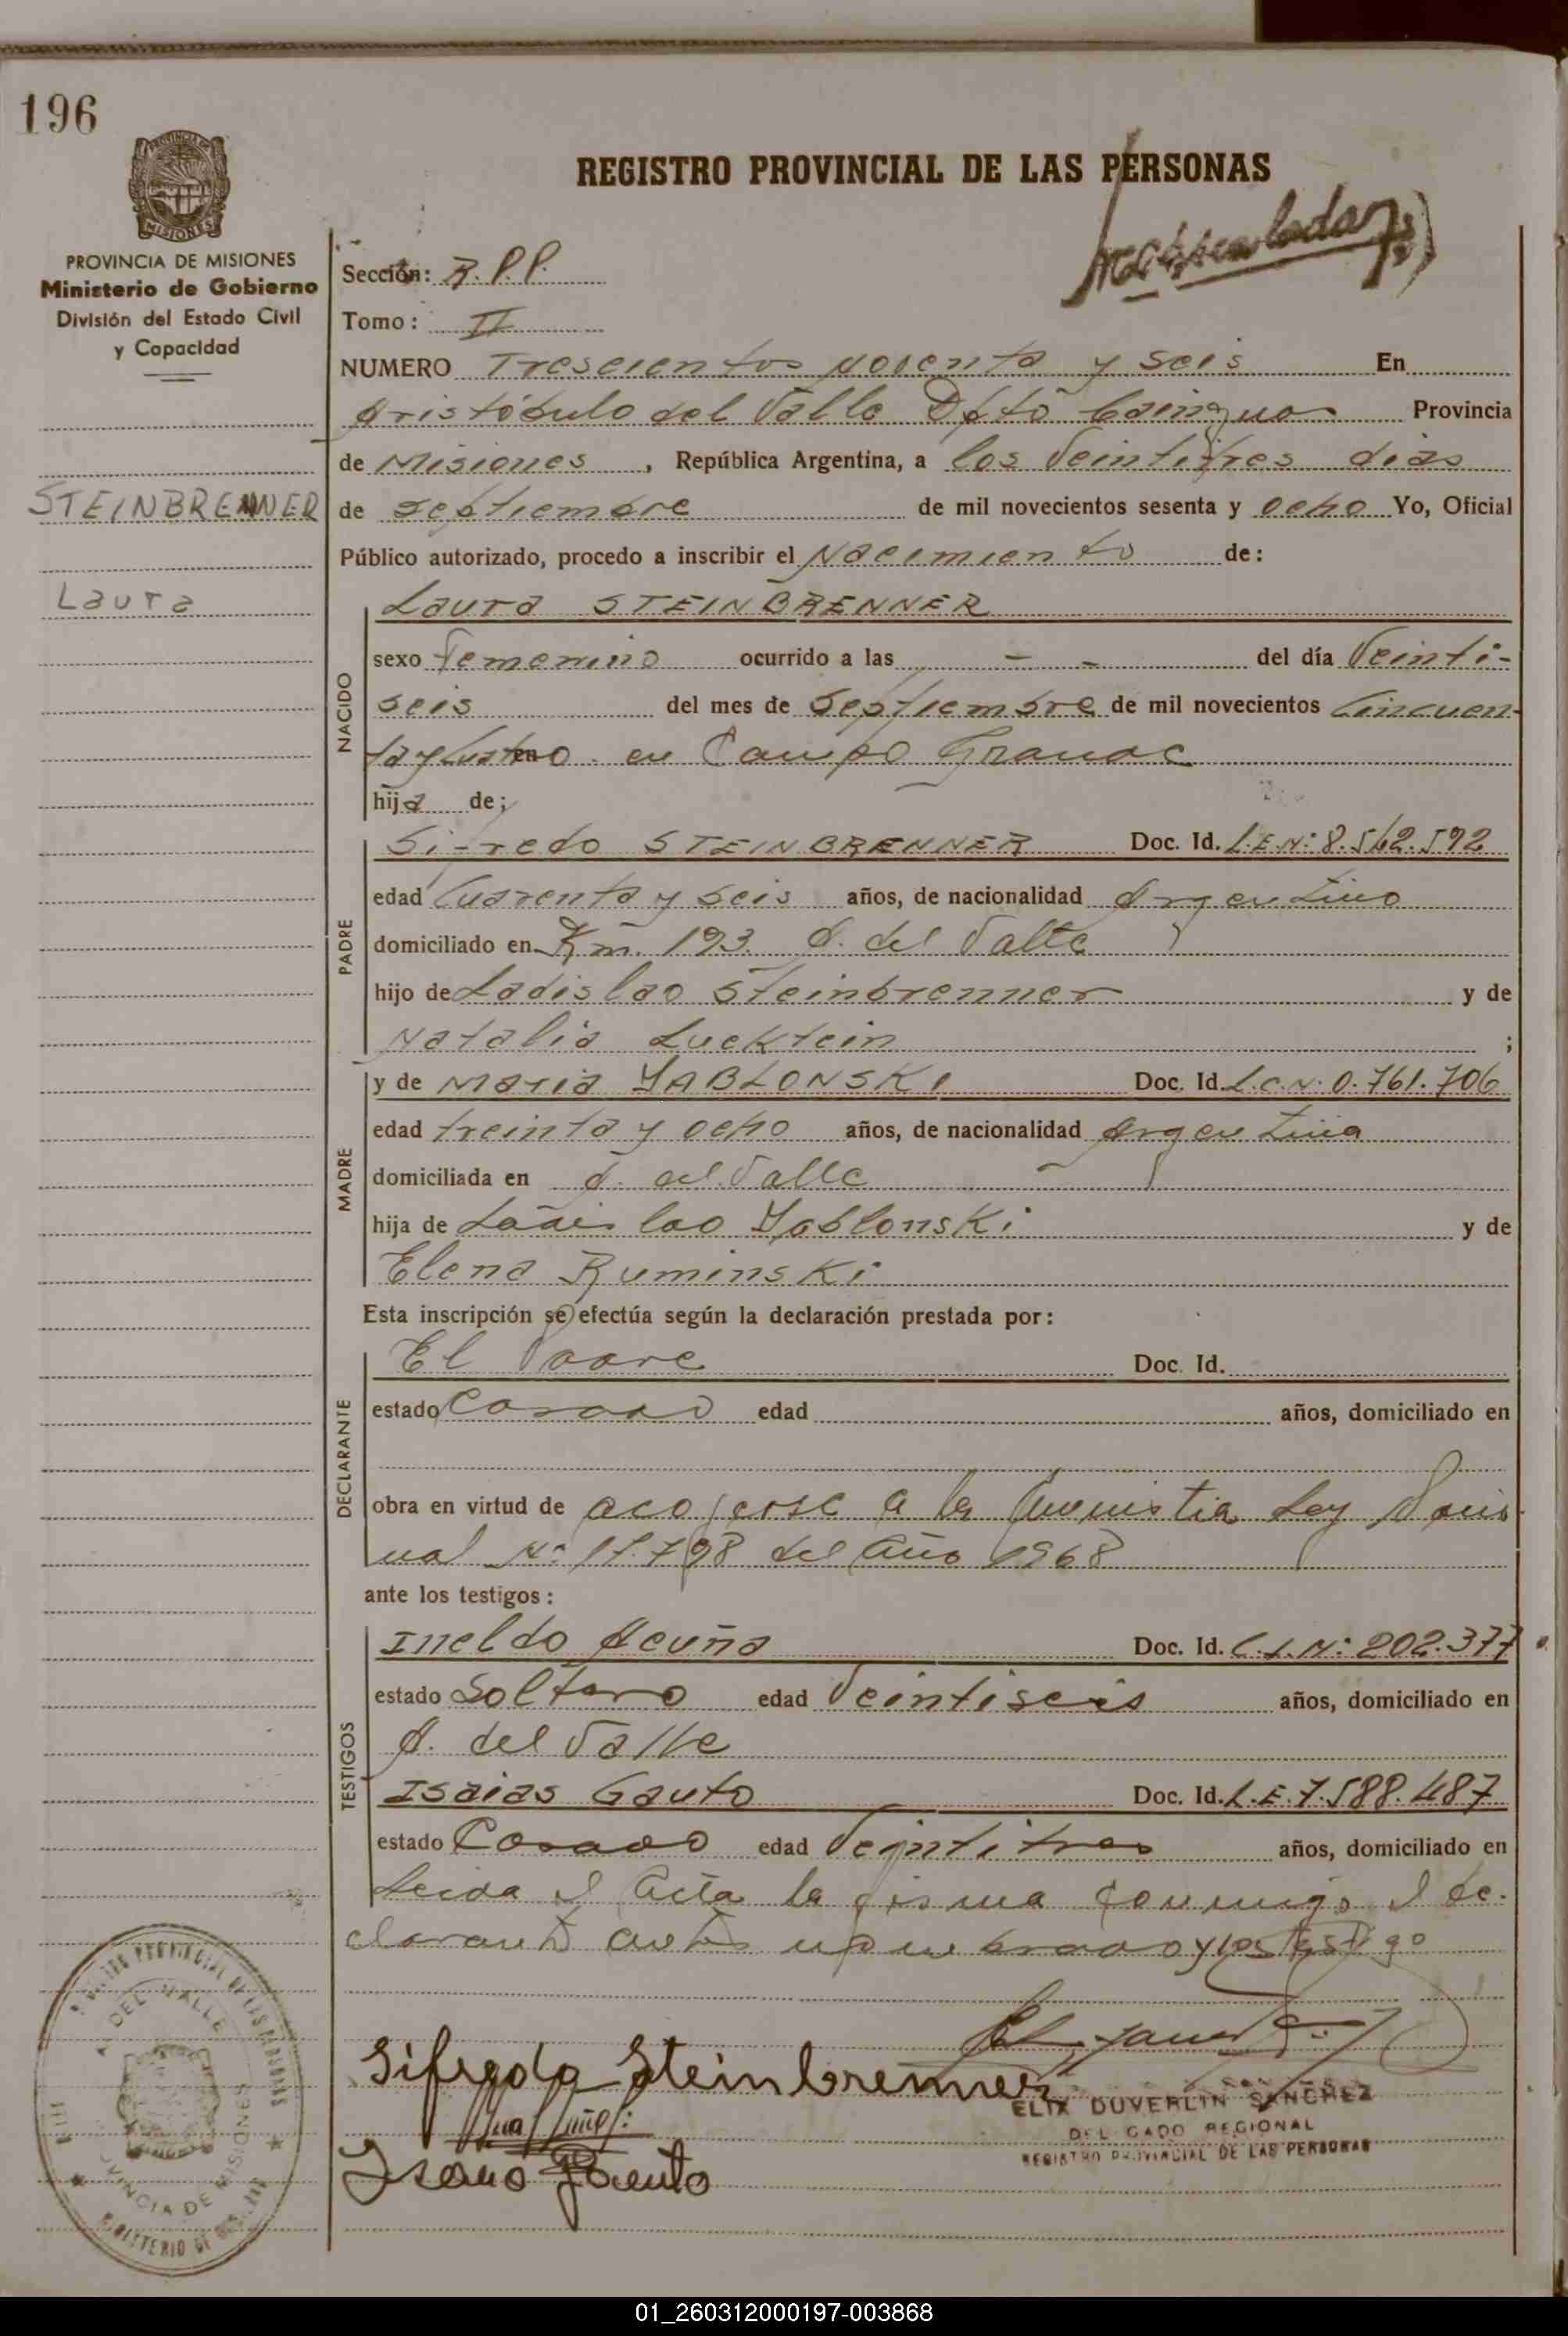 196
REGISTRO PROVINCIAL DE LAS PERSONAS
MISIONES
PROVINCIA DE MISIONES
Ministerio de Gobierno
División del Estado Civil
y Capacidad
STEINBRENNER
Laura
Sección: R.P.P.
Tomo: II
NUMERO Trescientos noventa y seis En
Aristóbulo del Valle Dpto Cainguas Provincia
de Misiones, República Argentina, a los Veintitres dias
de septiembre de mil novecientos sesenta y ocho Yo, Oficial
Público autorizado, procedo a inscribir el Nacimiento de:
NACIDO
Laura STEINBRENNER
sexo Femenino ocurrido a las - - del día Veinti-
seis del mes de Septiembre de mil novecientos Cincuen-
ta y en Campo Grande
hija de;
PADRE
Sifredo STEINBRENNER Doc. Id. L.E.Nº 8.562.592
edad Cuarenta y seis años, de nacionalidad Argentino
domiciliado en Km. 193. A. del Valle
hijo de Ladislao Steinbrenner y de
Natalia Lucktein ;
MADRE
y de Maria YABLONSKI Doc. Id. L.C.Nº 0.761.706
edad treinta y ocho años, de nacionalidad Argentina
domiciliada en A. del Valle
hija de Ladislao Yablonski y de
Elena Ruminski
Esta inscripción se efectúa según la declaración prestada por:
DECLARANTE
El Padre Doc. Id.
estado Casado edad años, domiciliado en
obra en virtud de acojerse a la Amnistia Ley Nacio
nal Nº 17.798 del Año 1968
ante los testigos:
TESTIGOS
Ineldo Acuña Doc. Id. C.I.Nº 202.377
estado Soltero edad Veintiseis años, domiciliado en
A. del Valle
Isaias Gauto Doc. Id. L.E. 7.588.487
estado Casado edad Veintitres años, domiciliado en
Leida el Acta la firma conmigo el de-
clarante antes nombrado y los testigo
Sifredo Steinbrenner
ELIX DUVERLIN SANCHEZ
DELEGADO REGIONAL
REGISTRO PROVINCIAL DE LAS PERSONAS
REGISTRO PROVINCIAL DE LAS PERSONAS
A. DEL VALLE
PROVINCIA DE MISIONES
MINISTERIO DE
01_260312000197-003868